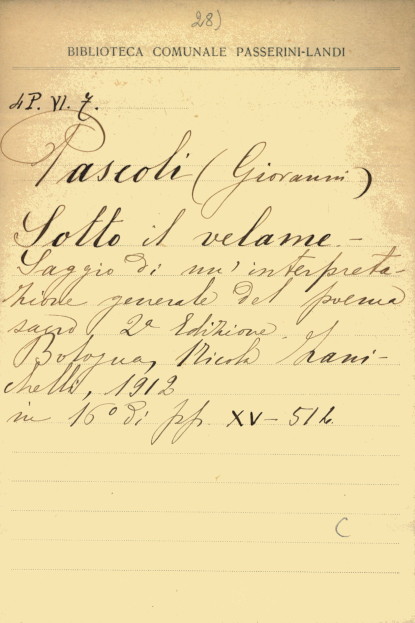 28)
BIBLIOTECA COMUNALE PASSERINI-LANDI
4P. VI. 7.
Pascoli (Giovanni)
Sotto il velame.-
Saggio di un' interpreta-
zione generale del poema
sacro, 2a Edizione.
Bologna, Nicola Zani-
chelli, 1912
in 16° di pp. XV-
C